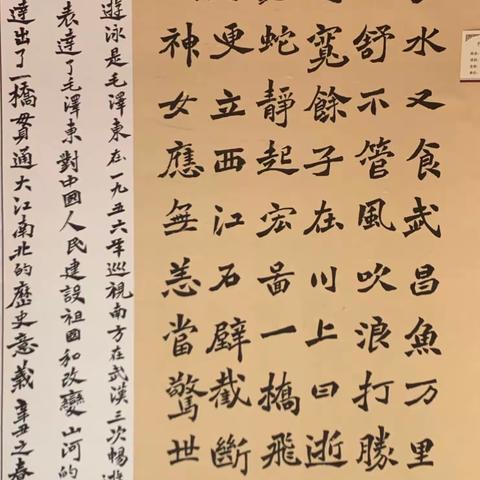 水又食武昌魚万里
舒不管風吹浪打勝
寬餘子在川上曰逝
蛇靜起宏啚一橋飛
更立西江石壁截斷
神女應無恙當驚世
遊泳是毛澤東在一九五六年巡視南方在武漢三次暢遊
表達了毛澤東對中國人民建設祖國和改變山河的
達出了一橋貫通大江南北的歷史意義 辛丑之春